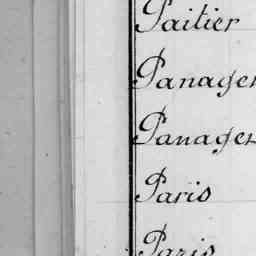 Paitier
Panaget
Panaget
Paris
Paris